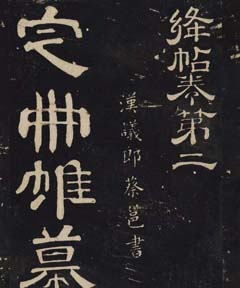 絳帖卷第二
漢議郎蔡邕書
定冊帷幕